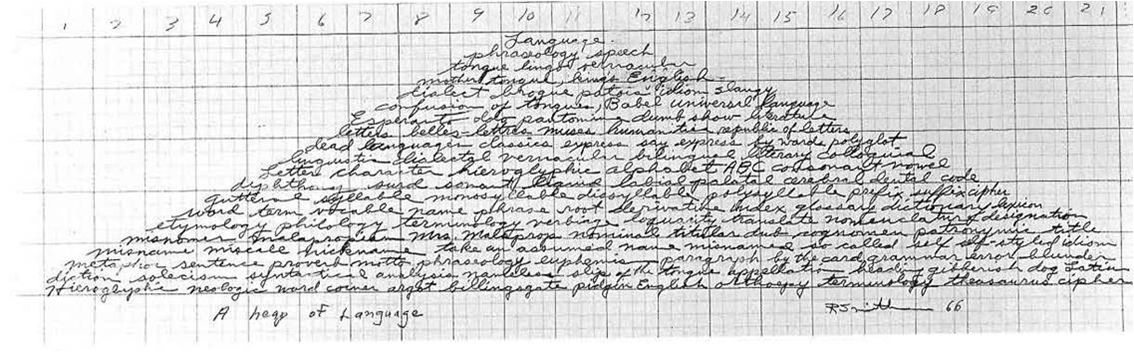 1 2 3 4 5 6 7 8 9 10 11 12 13 14 15 16 17 18 19 20 21
Language.
phraseology speech
tongue lingo vernacular
mother tongue, kings English
dialect brogue patois idiom slangy
confusion of tongues, Babel universal language
Esperanto dog pantomine dumb show literature
letters belles-lettres muses humanities republic of letters
dead languages classics express say express by words polyglot
linguistic dialectal vernacular bilingual literary colloquial
Letter character hieroglyphic alphabet ABC consonant vowel
diphthong surd sonant liquid labial palatal cerebral dental code
guttural syllable monosyllable dissyllable polysyllable prefix suffix cipher
word term vocable name phrase root derivative index glossary dictionary lexicon
etymology philology terminology verbiage loquacity translate nomenclature designation
misnomer malapropism Mrs. Malaprop nominal titular dub cognomen patronymic title
misname miscall nickname take an assumed name misnamed so called self self-styled idiom
metaphor sentence proverb motto phraseology euphemism paragraph by the card grammar error blunder
diction solecism syntactical analysis nameless slip of the tongue appellation heading gibberish dog Latin
Hieroglyphic neologic word coiner argot billingsgate pidgin English orthoepy terminology thesaurus cipher
A heap of Language
RSmithson 66